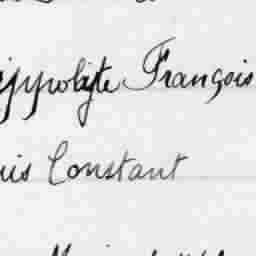 ippolyte François
uis Constant